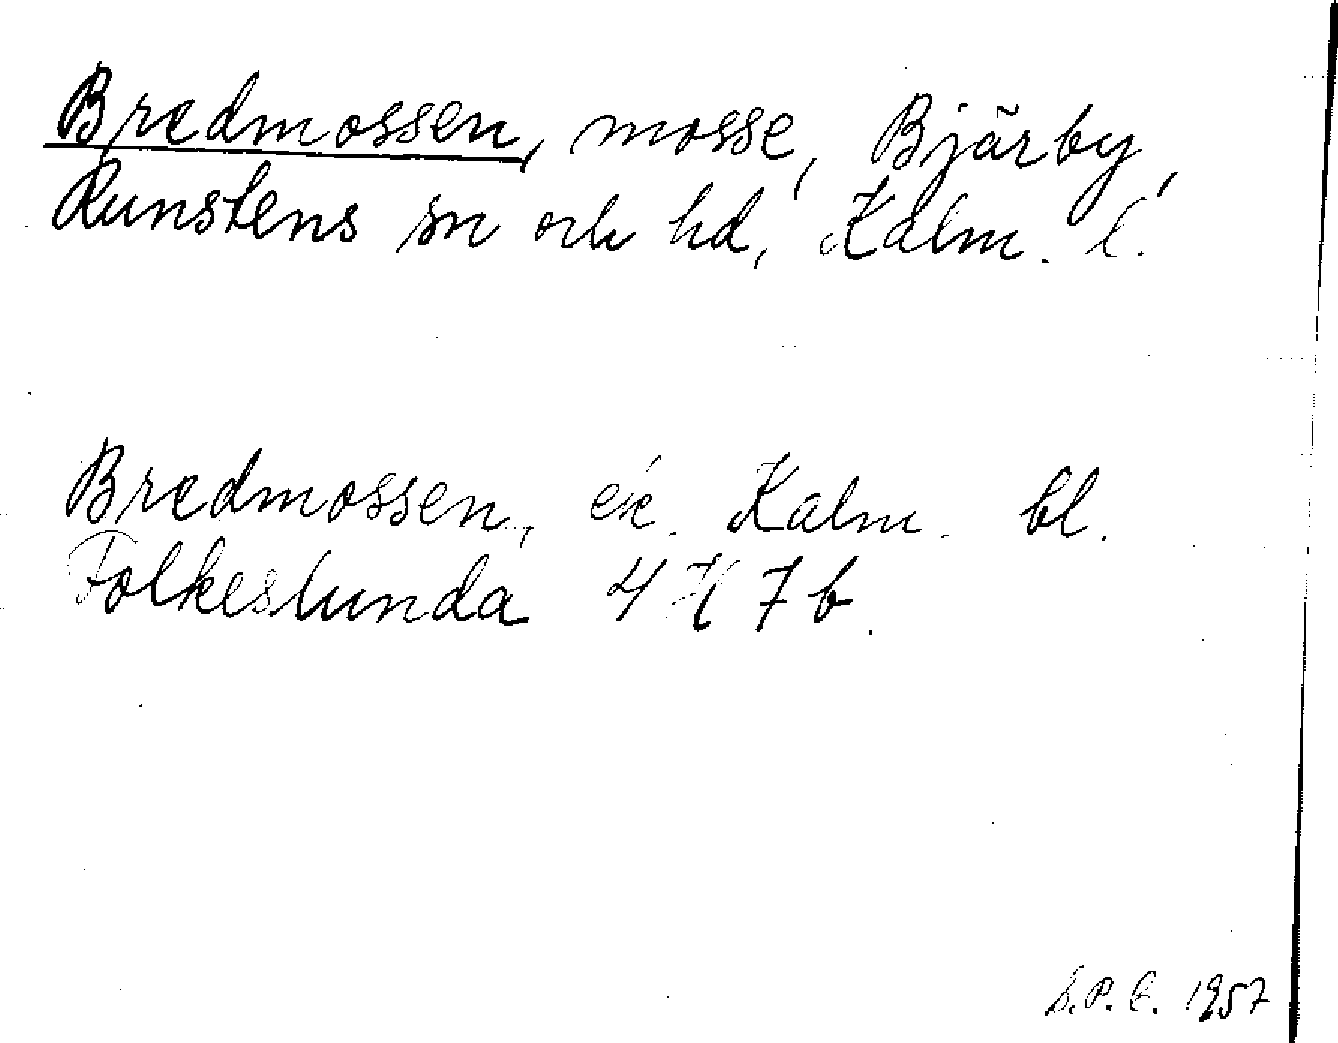 Bredmossen, mosse, Bjärby,
Runstens sn och hd, Kalm. l.
Bredmossen, ek. Kalm. bl.
Folkeslunda 4 H 7 b.
S.P.E. 1957